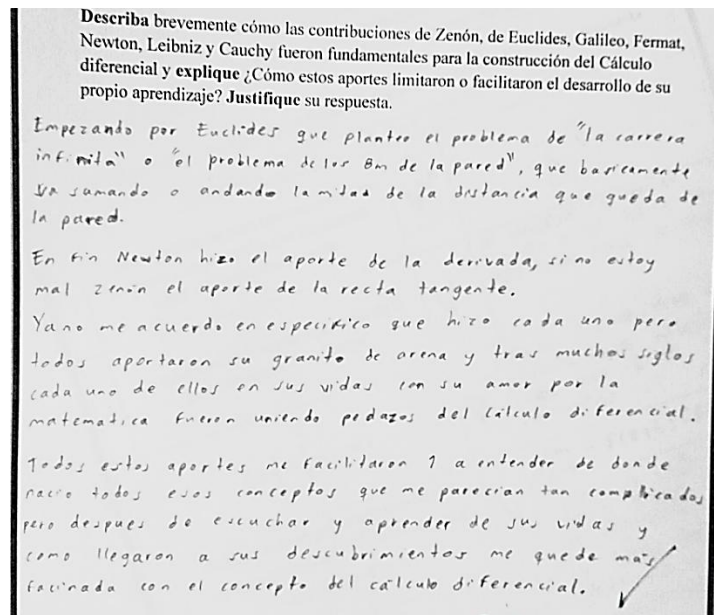 Describa brevemente cómo las contribuciones de Zenón, de Euclides, Galileo, Fermat,
Newton, Leibniz y Cauchy fueron fundamentales para la construcción del Cálculo
diferencial y explique ¿Cómo estos aportes limitaron o facilitaron el desarrollo de su
propio aprendizaje? Justifique su respuesta.
Empezando por Euclides que planteo el problema de "la carrera
infinita" o "el problema de los 8m de la pared", que basicamente
va sumando o andando la mitad de la distancia que queda de
la pared.
En fin Newton hizo el aporte de la derivada, si no estoy
mal zenón el aporte de la recta tangente.
Ya no me acuerdo en especifico que hizo cada uno pero
todos aportaron su granito de arena y tras muchos siglos
cada uno de ellos en sus vidas con su amor por la
matematica fueron uniendo pedazos del cálculo diferencial.
Todos estos aportes me facilitaron a entender de donde
nacio todos esos conceptos que me parecian tan complicados
pero despues de escuchar y aprender de sus vidas y
como llegaron a sus descubrimientos me quede mas
facinada con el concepto del cálculo diferencial.